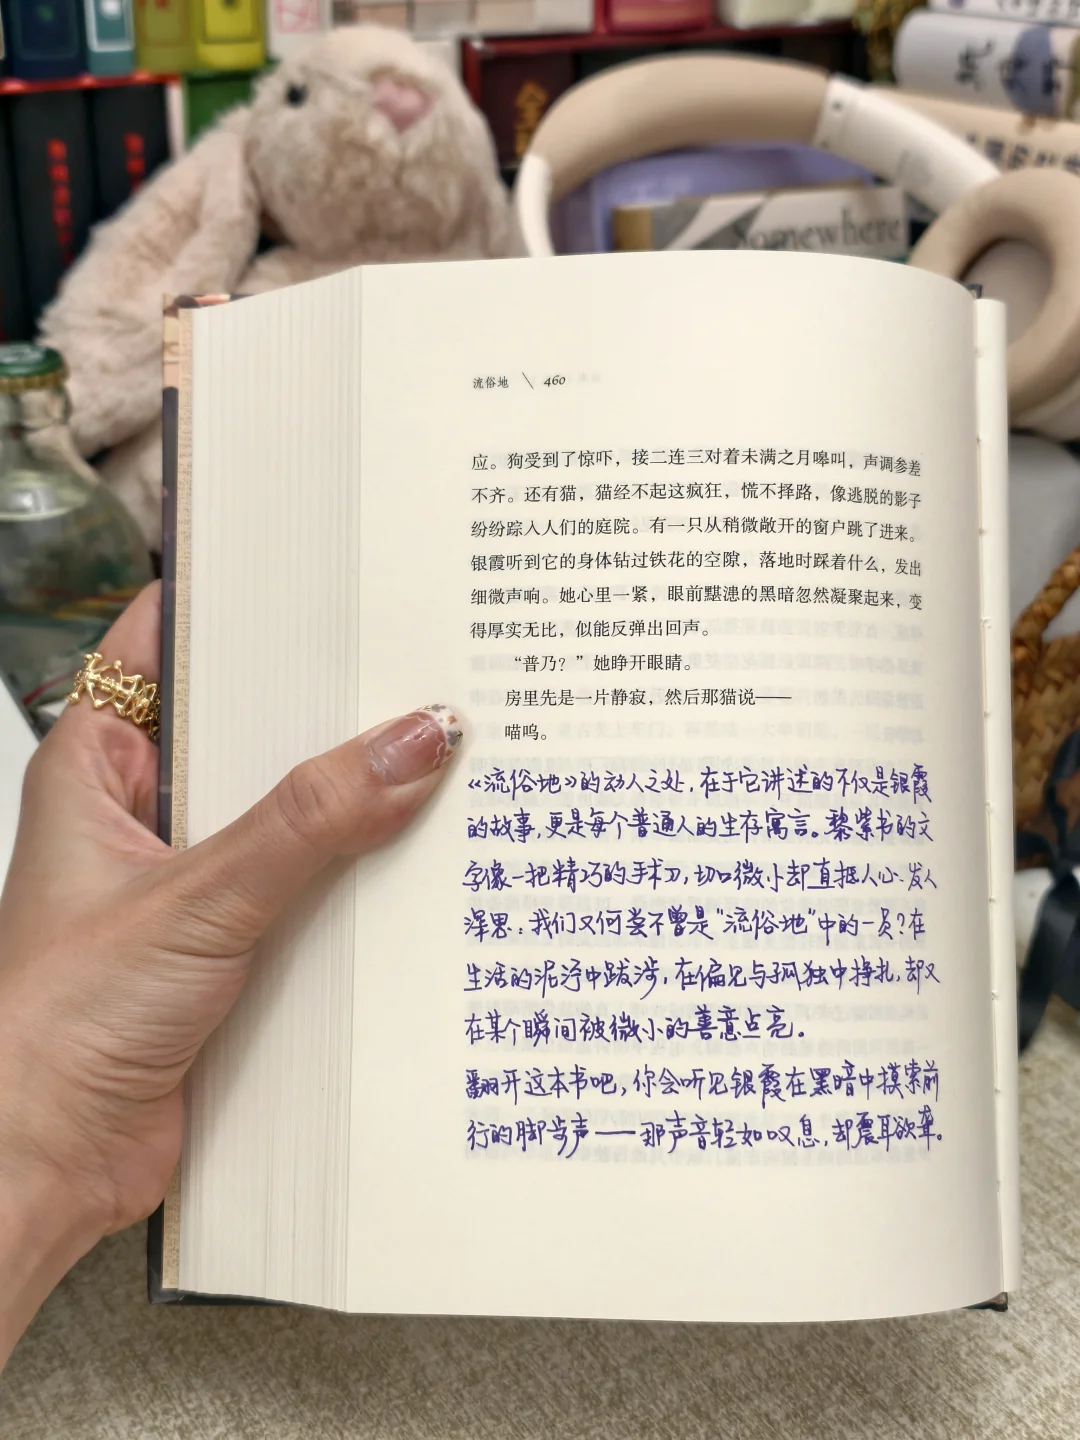 Somewhere
流俗地 \ 460
应。狗受到了惊吓，接二连三对着未满之月嗥叫，声调参差
不齐。还有猫，猫经不起这疯狂，慌不择路，像逃脱的影子
纷纷踪入人们的庭院。有一只从稍微敞开的窗户跳了进来。
银霞听到它的身体钻过铁花的空隙，落地时踩着什么，发出
细微声响。她心里一紧，眼前黮漶的黑暗忽然凝聚起来，变
得厚实无比，似能反弹出回声。
“普乃？”她睁开眼睛。
房里先是一片静寂，然后那猫说——
喵呜。
《流俗地》的动人之处，在于它讲述的不仅是银霞
的故事，更是每个普通人的生存寓言。黎紫书的文
字像一把精巧的手术刀，切口微小却直抵人心、发人
深思：我们又何尝不曾是“流俗地”中的一员？在
生活的泥泞中跋涉，在偏见与孤独中挣扎，却又
在某个瞬间被微小的善意点亮。
翻开这本书吧，你会听见银霞在黑暗中摸索前
行的脚步声——那声音轻如叹息，却震耳欲聋。